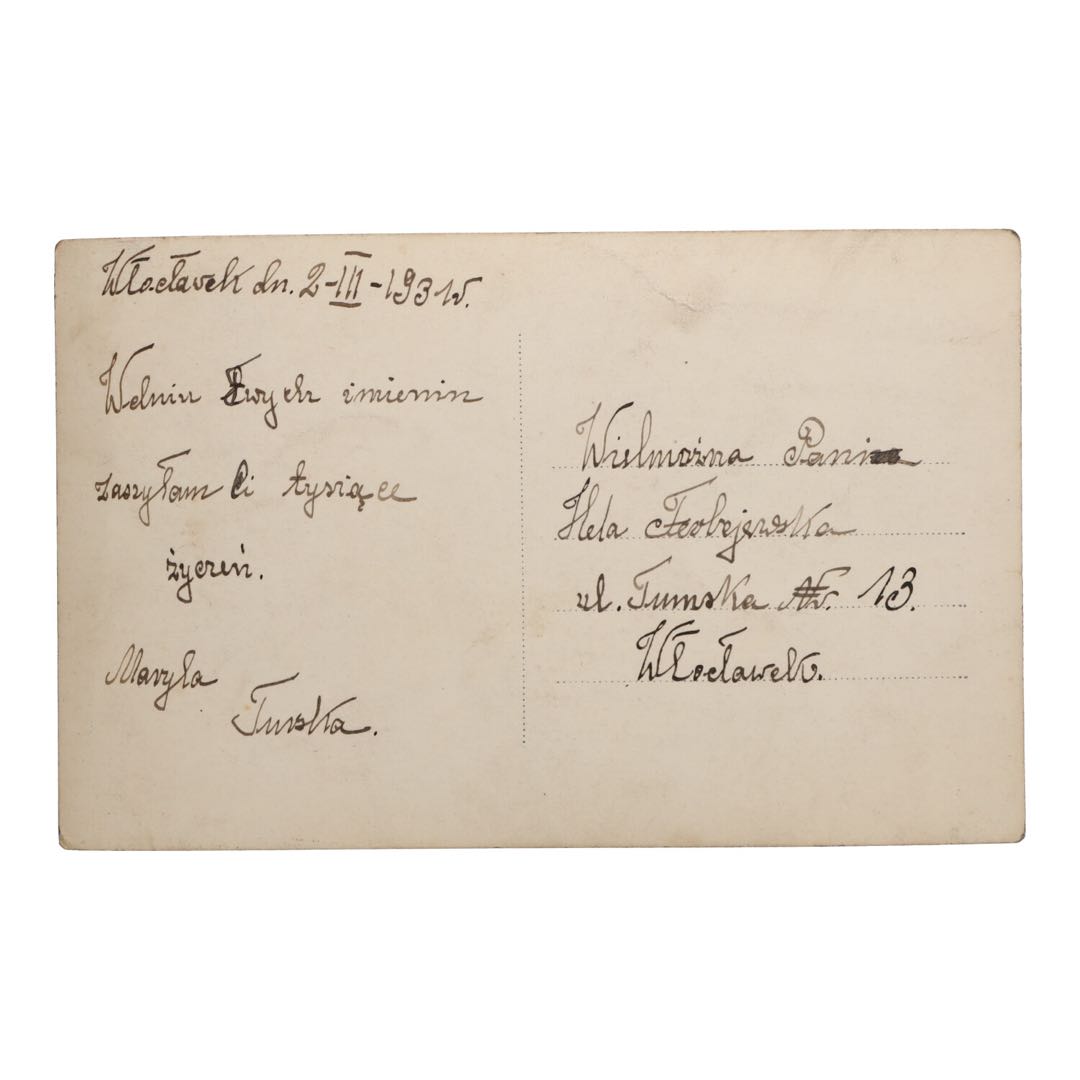 Włocławek dn. 2-III-1931r.
W dniu Twych imienin
zasyłam Ci tysiące
życzeń.
Maryla
Turska.
Wielmożna Pani
Hela
ul. Tumska Nr. 13.
Włocławek.